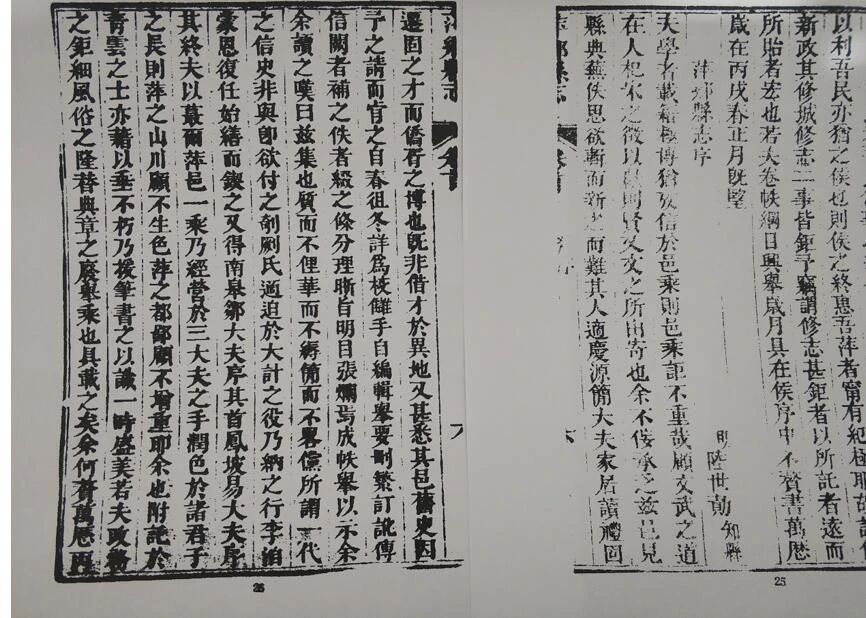 以利吾民亦猶之侯也則侯之終惠吾萍者甯有紀極耶
新政其修城修志二事皆鉅予竊謂修志甚鉅者以所託者遠而
所貽者宏也若夫卷帙綱目興舉歲月具在侯序中不贅書萬曆
歲在丙戌春正月既望
萍鄉縣志序
明 陸世勣 知縣
夫學者載籍極博猶攷信於邑乘則邑乘詎不重哉顧文武之道
在人杞宋之徵以 則賢又文之所由寄也余不佞承乏茲邑見
縣典藝佚思欲斬而新之而難其人適慶源簡大夫家居讀禮回
萍鄉縣志
卷首
25
萍鄉縣志
卷首
遷固之才而僑胥之博也既非借才於異地又甚悉其邑舊史因
予之請而肯之自春徂冬詳為校讎手自編輯舉要刪繁訂訛傳
信闕者補之佚者綴之條分理晰旨明目張爛焉成帙舉以示余
余讀之嘆曰茲集也質而不俚華而不縟簡而不畧儻所謂一代
之信史非與卽欲付之剞劂氏適迫於大計之役乃納之行李洎
蒙恩復任始繕而鍥之又得南臯鄒大夫序其首鳳坡易大夫序
其終夫以蕞爾萍邑一乘乃經營於三大夫之手潤色於諸君子
之長則萍之山川顧不生色萍之都鄙顧不增重耶余也附託於
靑雲之士亦藉以垂不朽乃援筆書之以識一時盛美若夫政務
之鉅細風俗之隆替典章之廢舉乘也具載之矣余何贅萬曆丙
26